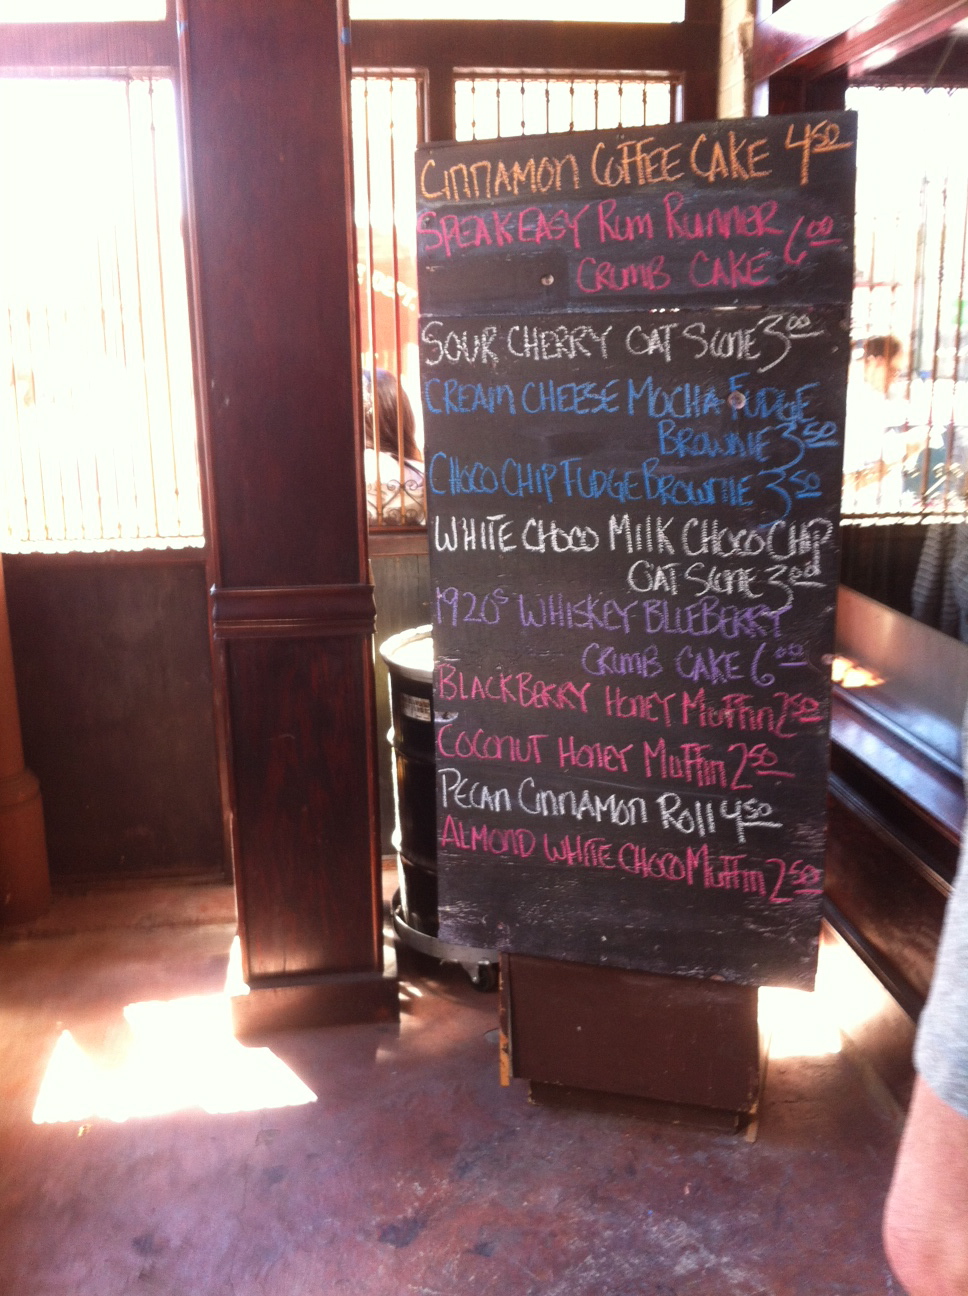 CINNAMON COFFEE CAKE 4.50
SPEAKEASY RUM RUNNER 6.00
CRUMB CAKE
SOUR CHERRY OAT SCONE 3.00
CREAM CHEESE MOCHA FUDGE
BROWNIE 3.50
CHOCO CHIP FUDGE BROWNIE 3.50
WHITE CHOCO MILK CHOCO CHIP
OAT SCONE 3.00
1920s WHISKEY BLUEBERRY
CRUMB CAKE 6.00
BLACKBERRY HONEY MUFFIN 2.50
COCONUT HONEY MUFFIN 2.50
PECAN CINNAMON ROLL 4.50
ALMOND WHITE CHOCO MUFFIN 2.50